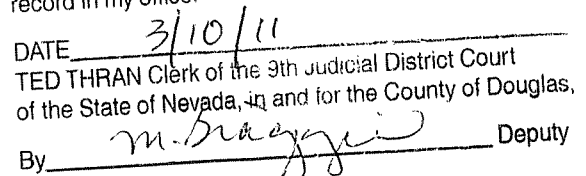 record in my office.
DATE 3/10/11
TED THRAN Clerk of the 9th Judicial District Court
of the State of Nevada, in and for the County of Douglas,
By M. Deputy